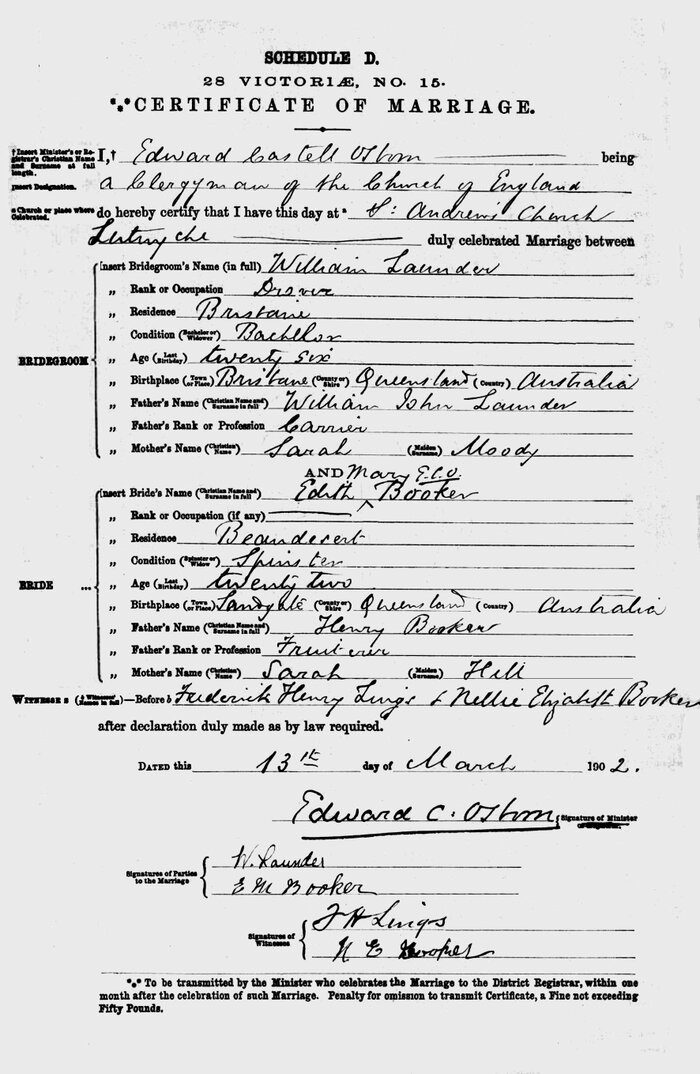 SCHEDULE D.
28 VICTORIÆ, NO. 15.
*⁎*CERTIFICATE OF MARRIAGE.
† Insert Minister's or Registrar's Christian Name and Surname at full length.
I,† Edward Castell Osborn being
Insert Designation.
a Clergyman of the Church of England
a Church or place where Celebrated.
do hereby certify that I have this day at a St: Andrew's Church
Lutwyche duly celebrated Marriage between
BRIDEGROOM
Insert Bridegroom's Name (in full) William Launder
„ Rank or Occupation Drover
„ Residence Brisbane
„ Condition (Bachelor or Widower) Bachelor
„ Age (Last Birthday) twenty six
„ Birthplace (Town or Place) Brisbane (County or Shire) Queensland (Country) Australia
„ Father's Name (Christian Name and Surname in full) William John Launder
„ Father's Rank or Profession Carrier
„ Mother's Name (Christian Name) Sarah (Maiden Surname) Moody
AND Mary E.C.O.
BRIDE ...
Insert Bride's Name (Christian Name and Surname in full) Edith ^ Booker
„ Rank or Occupation (if any)
„ Residence Beaudesert
„ Condition (Spinster or Widow) Spinster
„ Age (Last Birthday) twenty two
„ Birthplace (Town or Place) Sandgate (County or Shire) Queensland (Country) Australia
„ Father's Name (Christian Name and Surname in full) Henry Booker
„ Father's Rank or Profession Fruiterer
„ Mother's Name (Christian Name) Sarah (Maiden Surname) Hill
WITNESSES (b Witnesses' Names in full)—Before b Frederick Henry Lings & Nellie Elizabeth Booker
after declaration duly made as by law required.
DATED this 13th day of March 1902.
Edward C. Osborn Signature of Minister
Signatures of Parties to the Marriage
W. Launder
E M Booker
Signatures of Witnesses
F H Lings
N E Booker
*⁎* To be transmitted by the Minister who celebrates the Marriage to the District Registrar, within one
month after the celebration of such Marriage. Penalty for omission to transmit Certificate, a Fine not exceeding
Fifty Pounds.